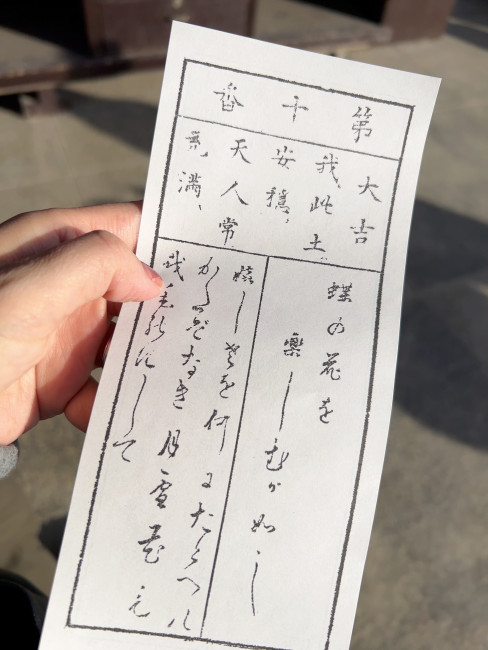 第十番
大吉
我此土
安穩、
天人常
充滿、
蝶の花を
樂しむが如し
嬉しさを何にたとへん
かたぞなき月雪花も
我ものにして